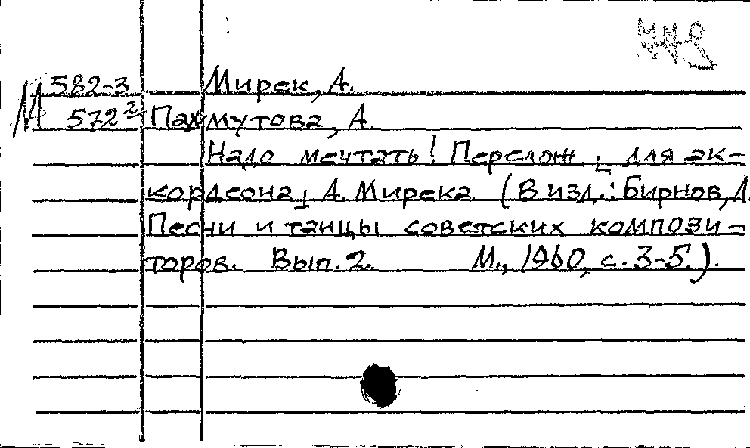 М 582-3 Мирек, А.
572² Пахмутова, А.
Надо мечтать! Перелож. [для ак-
кордеона] А. Мирека. (В изд.: Бирнов, Л.
Песни и танцы советских компози-
торов. Вып. 2. М., 1960, с. 3-5.).